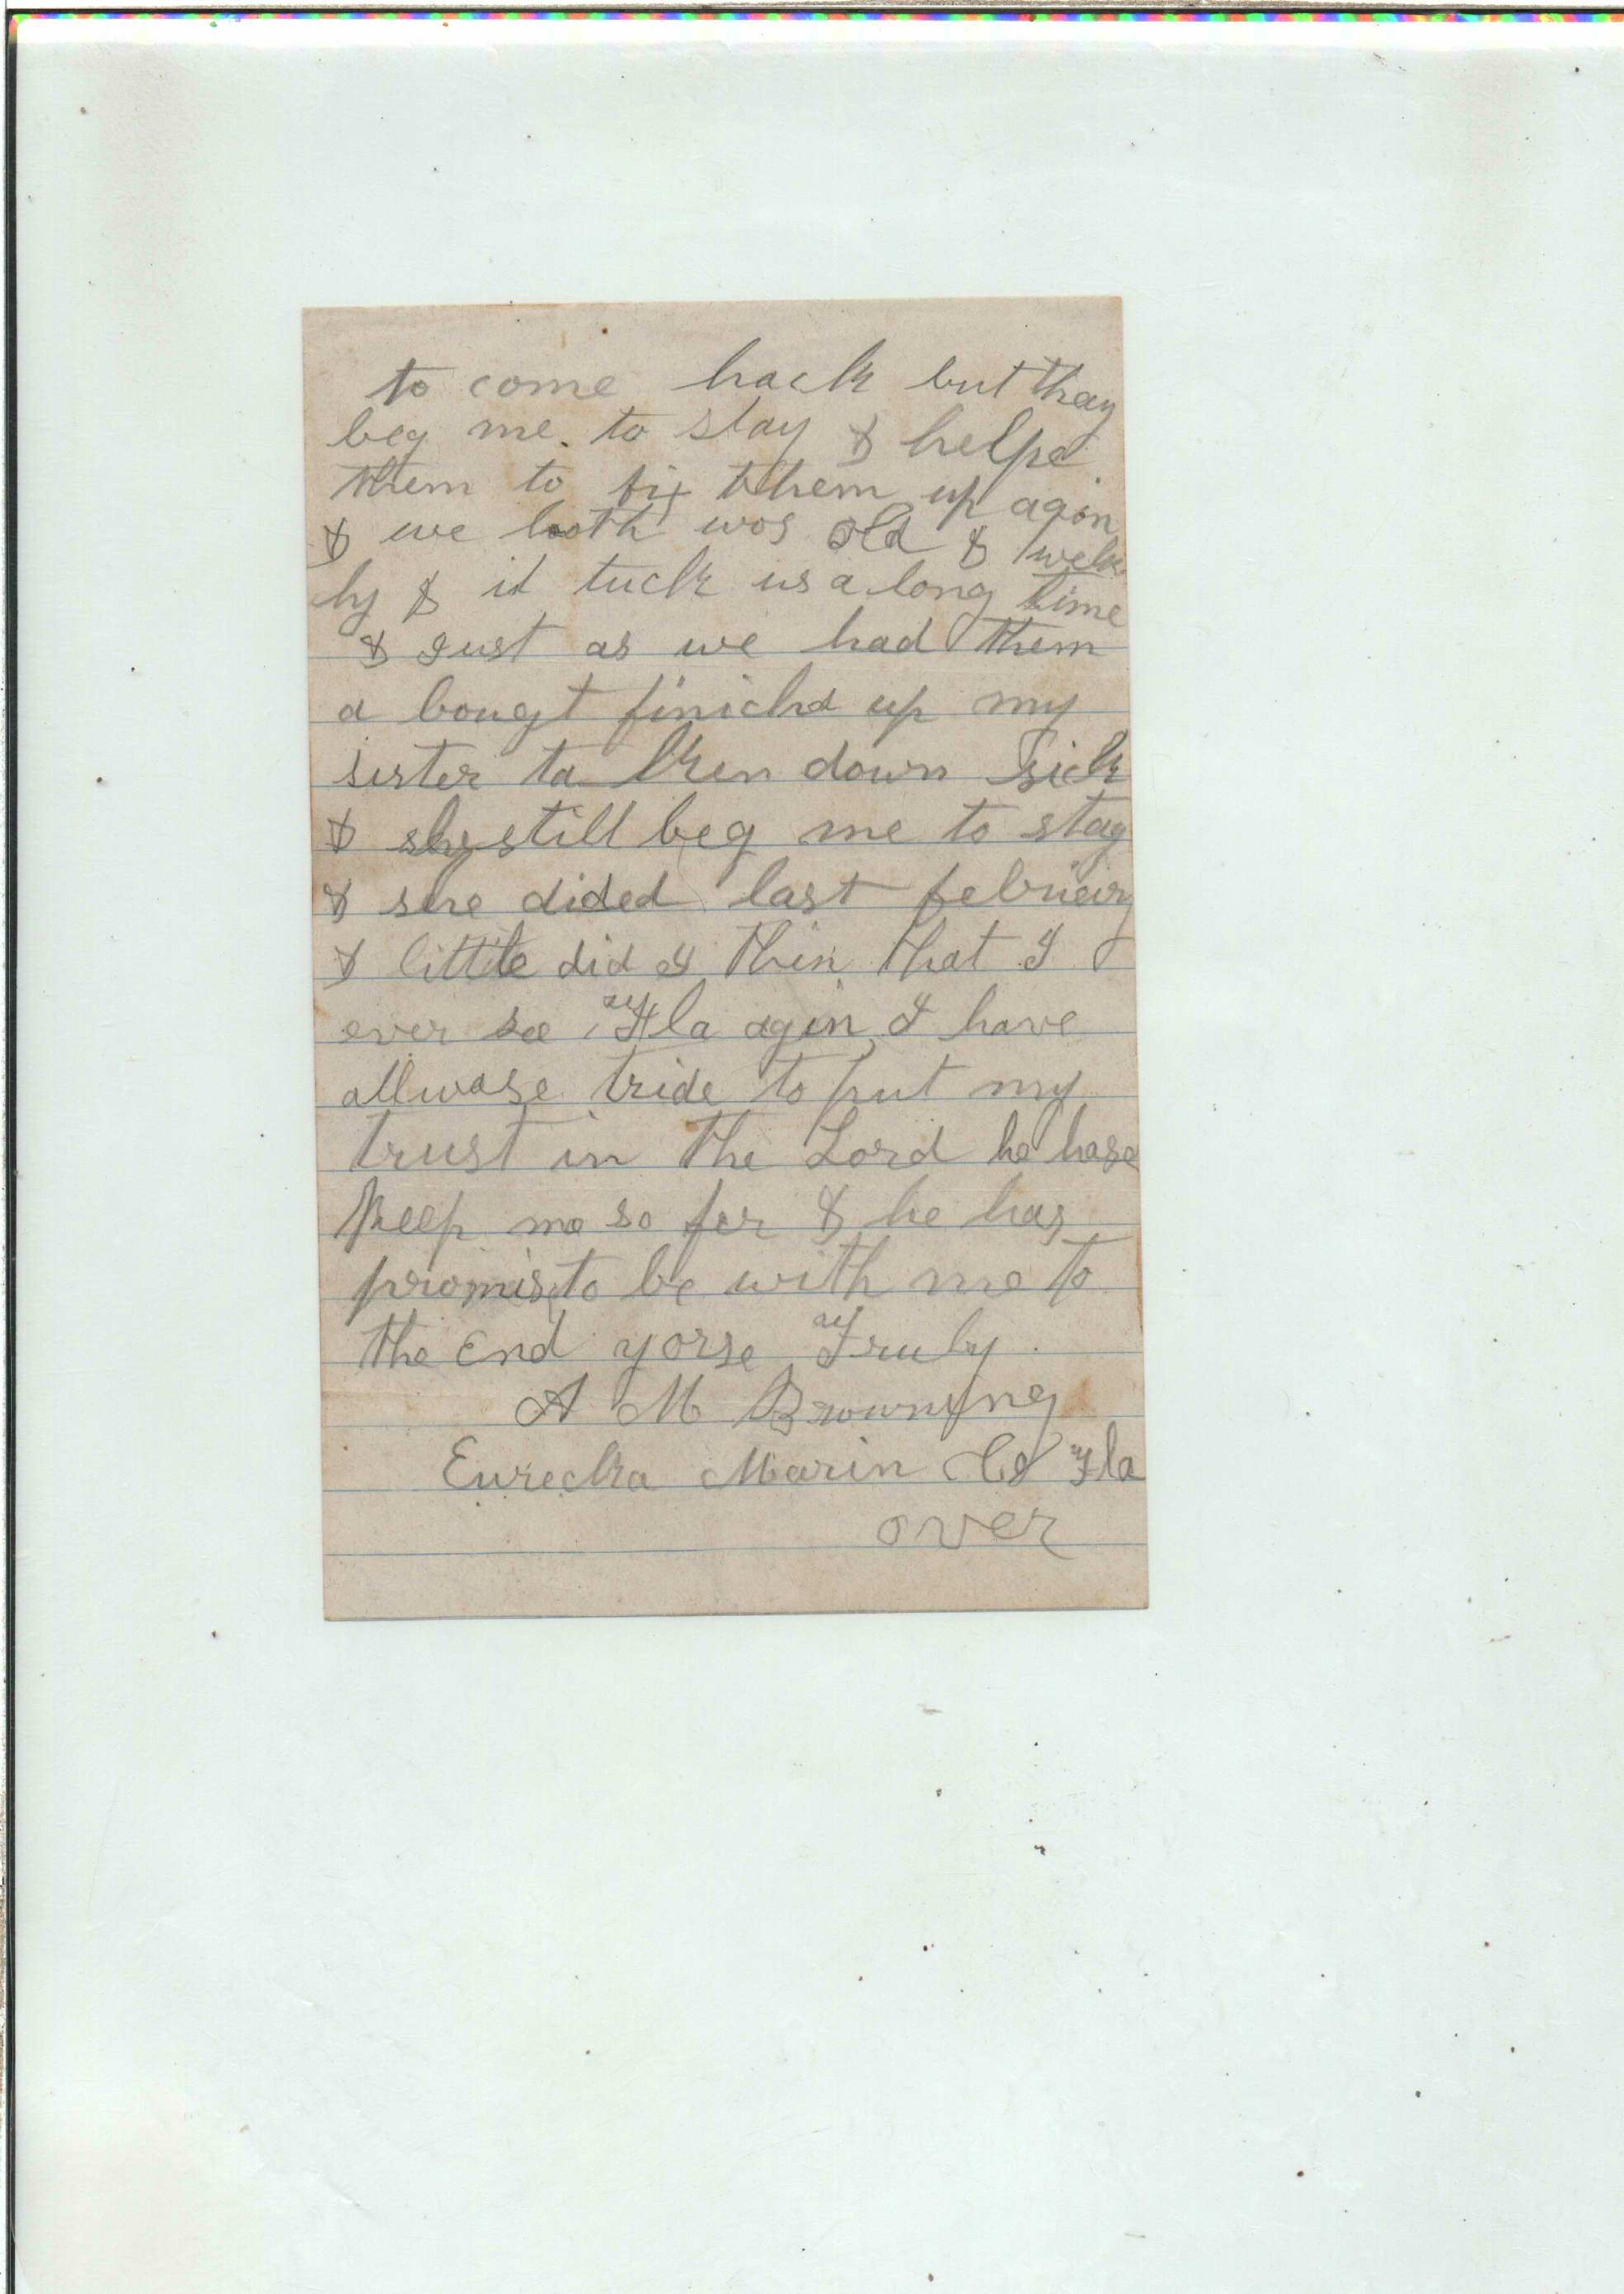 to come back but thay
beg me. to stay & helpe
them to fix them up agin
& we booth wos old & welk
ly & it tuck us a long time
& Just as we had them
a bougt finichd up my
sister ta ken down sick
& she still beg me to stay
& shre dided last febrieiry
& little did I thin that I
ever see Fla agin I have
allwase tride to put my
trust in the Lord he hase
Keep me so fer & he has
promis to be with me to
the End yorse Truly.
A M Browning
Eurecka Marin Co Fla
over